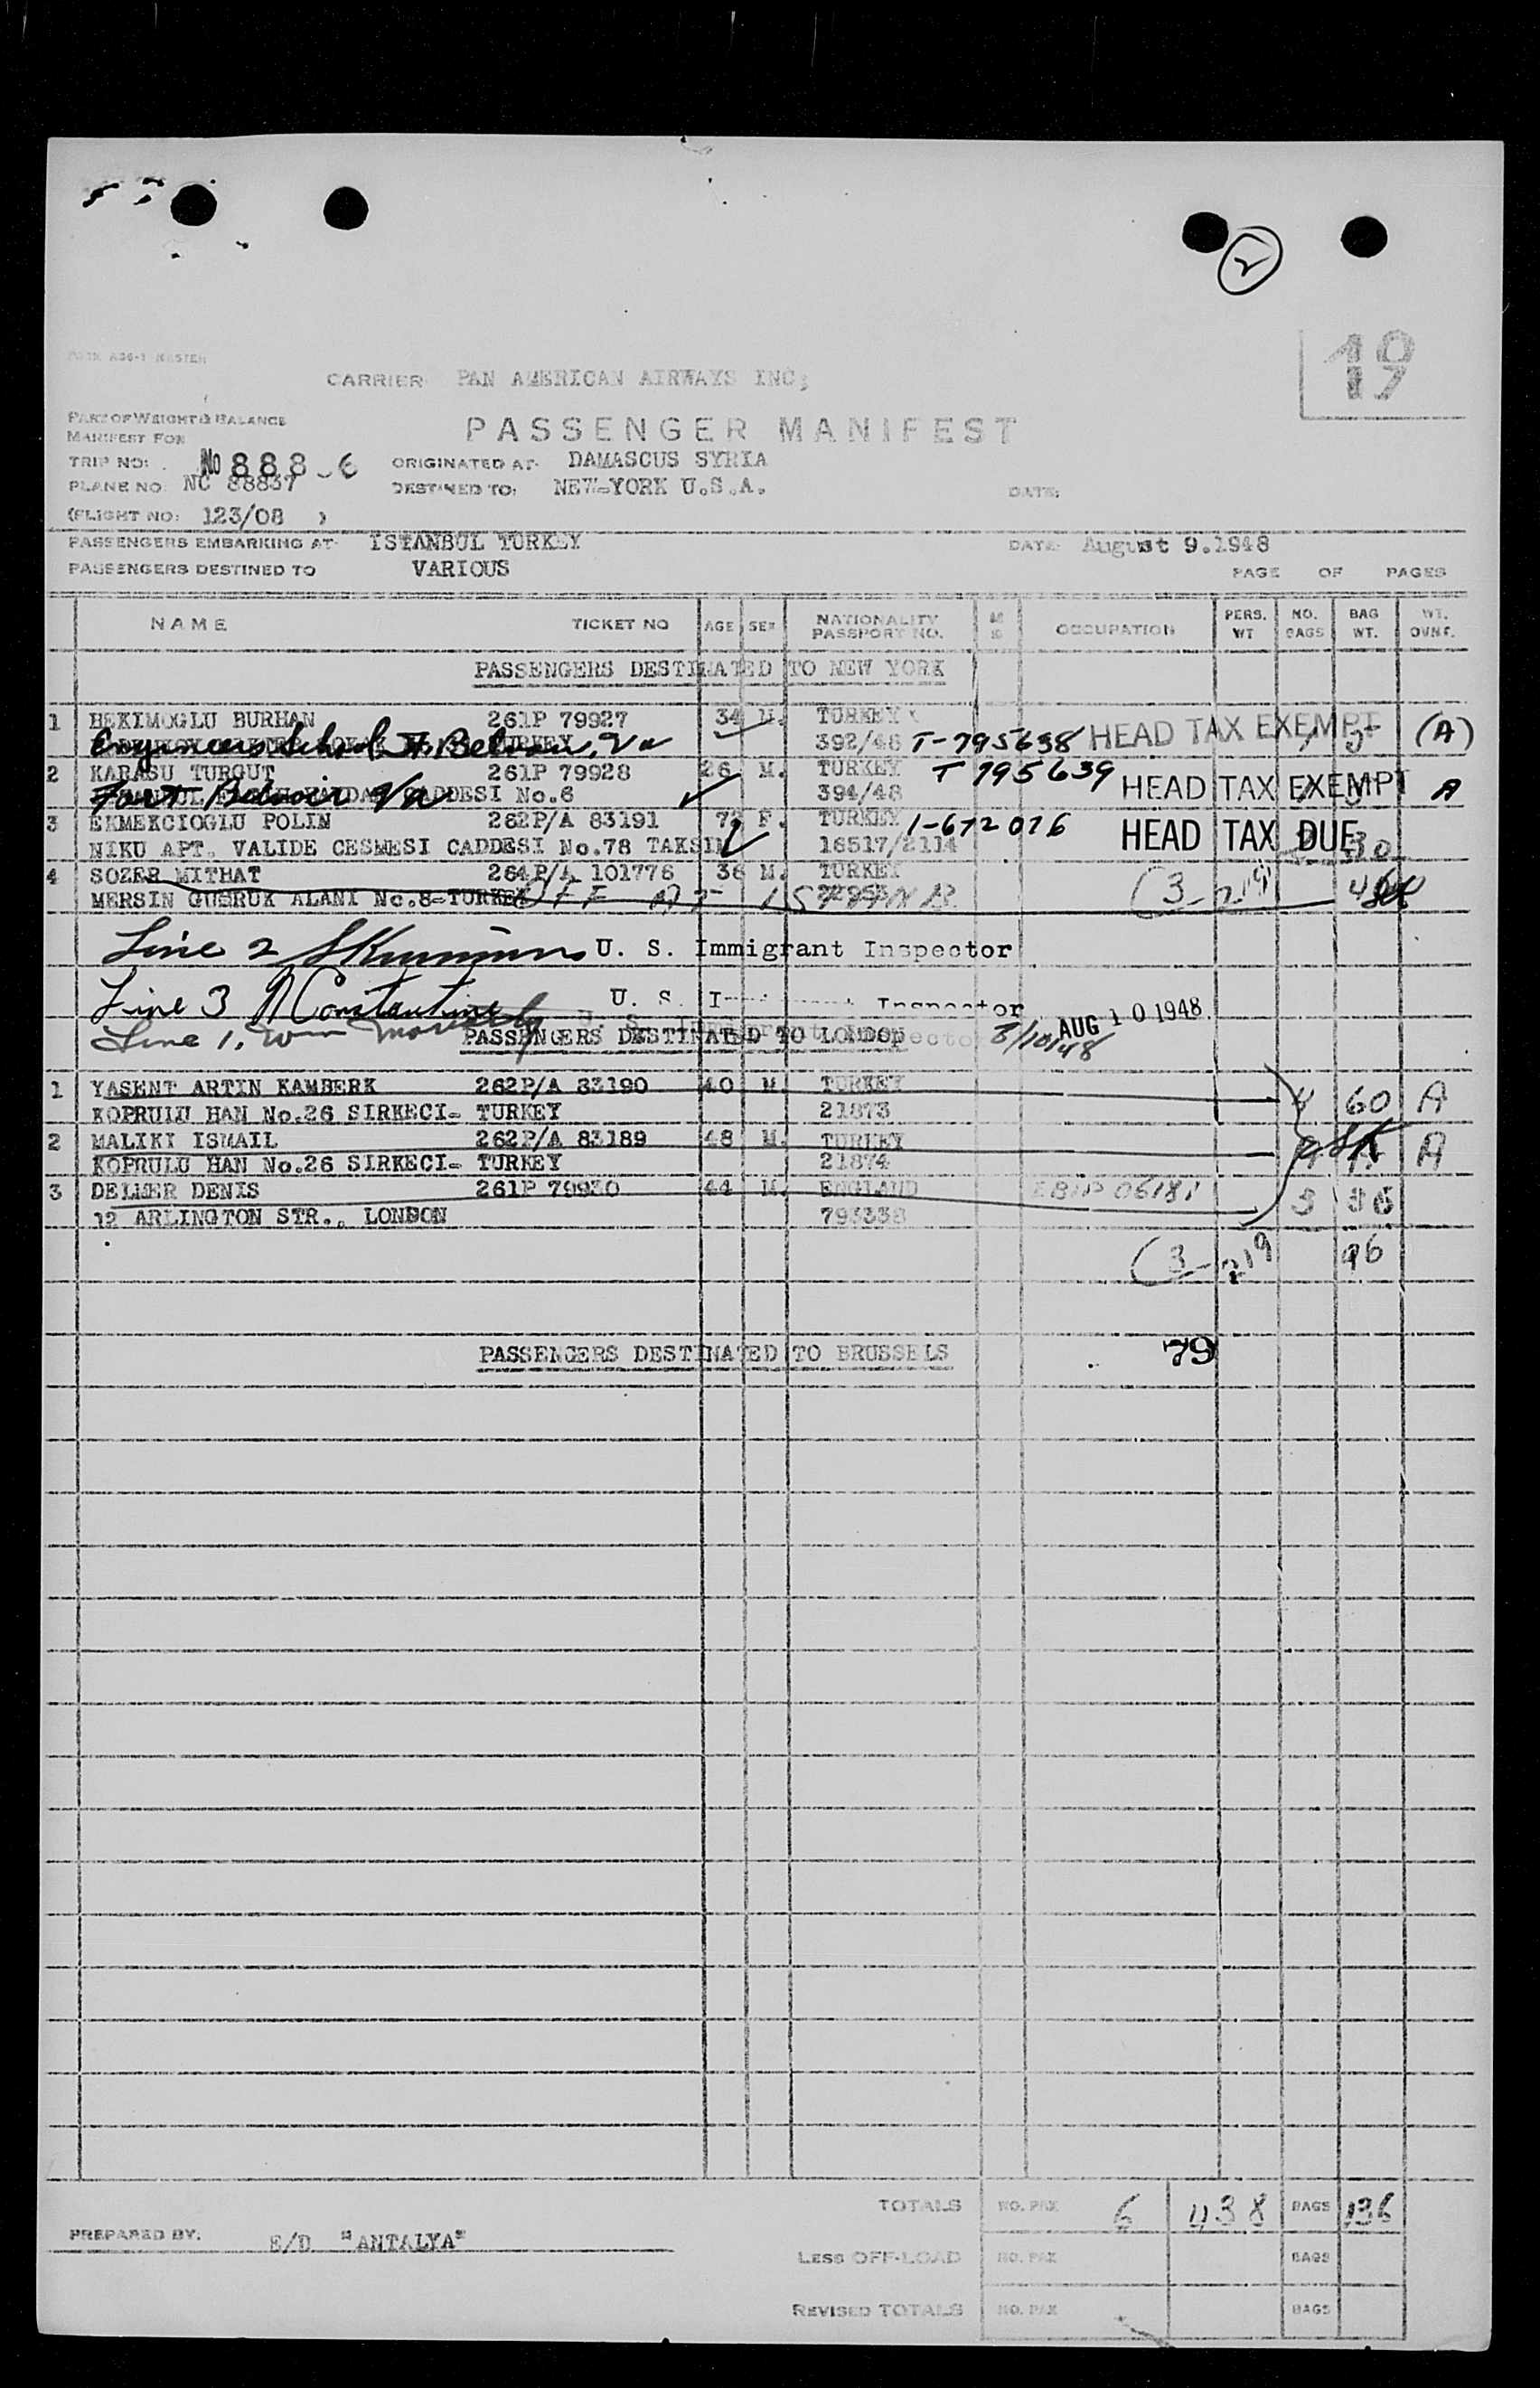 2
19
17
CARRIER PAN AMERICAN AIRWAYS INC;
PART OF WEIGHT & BALANCE
MANIFEST FOR
PASSENGER MANIFEST
TRIP NO: No 888-6 ORIGINATED AT: DAMASCUS SYRIA
PLANE NO NC 88837 DESTINED TO: NEW-YORK U.S.A. DATE:
(FLIGHT NO: 123/08 )
PASSENGERS EMBARKING AT- ISTANBUL TURKEY DATE August 9.1948
PASSENGERS DESTINED TO VARIOUS PAGE OF PAGES
NAME TICKET NO AGE SEX NATIONALITY PASSPORT NO. OCCUPATION PERS. WT NO. BAGS BAG WT. WT. OVNT.
PASSENGERS DESTINATED TO NEW YORK
1 HEKIMOGLU BURHAN 261P 79927 34 M. TURKEY
Engineers School Ft Belvoir, Va TURKEY 392/48 T-795638 HEAD TAX EXEMPT (A)
2 KARASU TURGUT 261P 79928 26 M. TURKEY T 795639
Fort Belvoir Va CADDESI No.6 394/48 HEAD TAX EXEMPT A
3 EKMEKCIOGLU POLIN 262P/A 83191 F. TURKEY 1-672076
NIKU APT. VALIDE CESMESI CADDESI No.78 TAKSIM 16517/2114 HEAD TAX DUE 30
4 SOZER MITHAT 264P/A 101776 36 M. TURKEY
MERSIN GUMRUK ALANI No.8-TURKEY OFF AT (3 219
Line 2 U. S. Immigrant Inspector
Line 3 Constantine U. S. Inspector AUG 10 1948
Line 1, Wm 8/10/48
PASSENGERS DESTINATED TO LONDON
1 YASENT ARTIN KAMBERK 262P/A 83190 40 M TURKEY
KOPRULU HAN No.26 SIRKECI- TURKEY 21873 4 60 A
2 MALIKI ISMAIL 262P/A 83189 48 M. TURKEY
KOPRULU HAN No.26 SIRKECI- TURKEY 21874 A
3 DELMER DENIS 261P 79930 44 M. ENGLAND EBIP 06181
12 ARLINGTON STR., LONDON 793338 3 36
(3 219 96
PASSENGERS DESTINATED TO BRUSSELS 79
TOTALS NO. PAX 6 438 BAGS 136
PREPARED BY. E/D "ANTALYA"
LESS OFF-LOAD NO. PAX BAGS
REVISED TOTALS NO. PAX BAGS